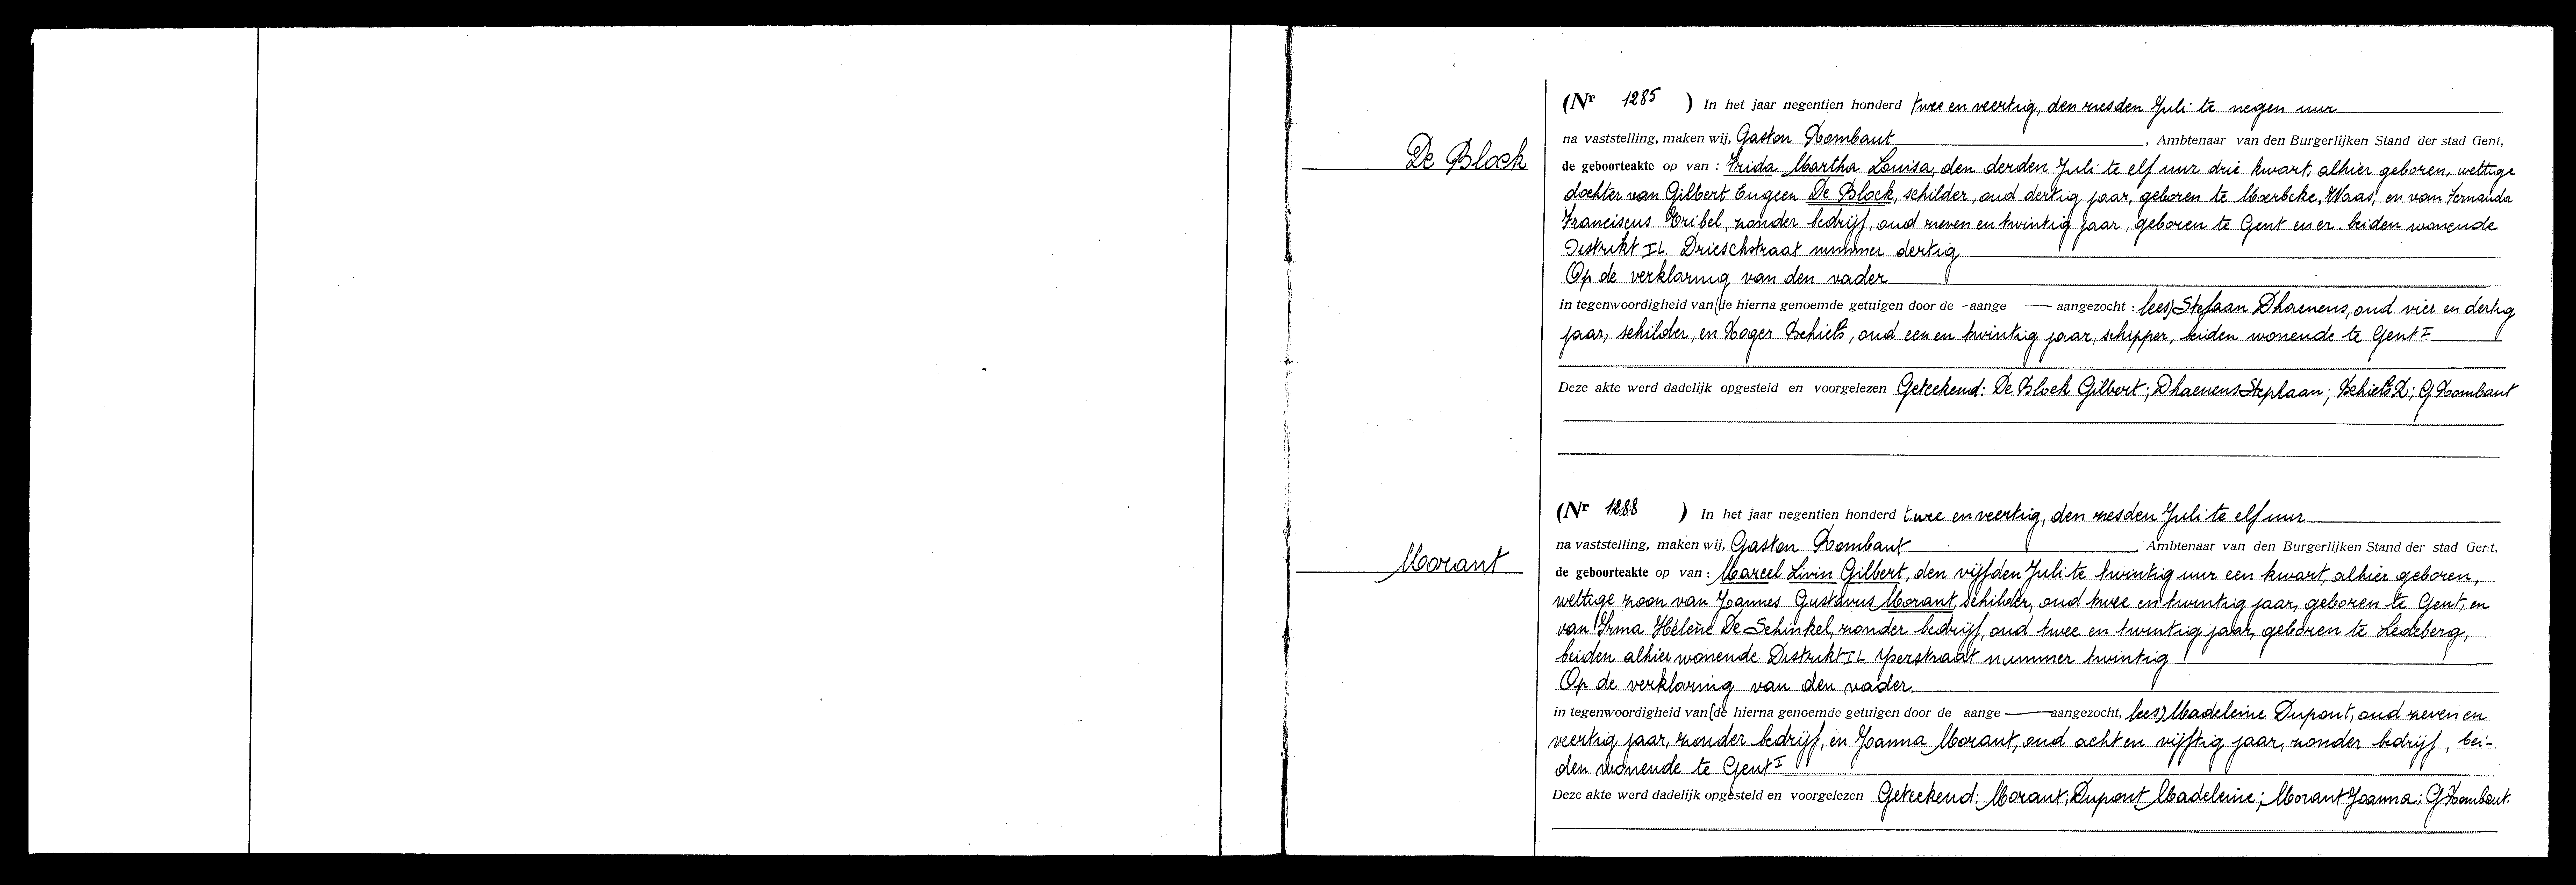 De Block
(Nr 1285 ) In het jaar negentien honderd twee en veertig, den zesden Juli te negen uur
na vaststelling, maken wij, Gaston Rombaut, Ambtenaar van den Burgerlijken Stand der stad Gent,
de geboorteakte op van : Frida Martha Louisa, den derden Juli te elf uur drie kwart, alhier geboren, wettige
dochter van Gilbert Eugeen De Block, schilder, oud dertig jaar, geboren te Moerbeke, Waas, en van Fernanda
Franciscus Kribel, zonder bedrijf, oud zeven en twintig jaar, geboren te Gent en er beiden wonende
Distrikt II. Drieschstraat nummer dertig
Op de verklaring van den vader
in tegenwoordigheid van (de hierna genoemde getuigen door de -aange — aangezocht : lees) Stefaan Dhaenens, oud vier en dertig
jaar, schilder, en Roger Schiets, oud een en twintig jaar, schipper, beiden wonende te Gent I
Deze akte werd dadelijk opgesteld en voorgelezen Geteekend: De Block Gilbert; Dhaenens Stephaan; Schiets R; G Rombaut
Morant
(Nr 1288 ) In het jaar negentien honderd twee en veertig, den zesden Juli te elf uur
na vaststelling, maken wij, Gaston Rombaut, Ambtenaar van den Burgerlijken Stand der stad Gent,
de geboorteakte op van : Marcel Livin Gilbert, den vijfden Juli te twintig uur een kwart, alhier geboren,
wettige zoon van Joannes Gustavus Morant, schilder, oud twee en twintig jaar, geboren te Gent, en
van Irma Hélène De Schinkel, zonder bedrijf, oud twee en twintig jaar, geboren te Ledeberg,
beiden alhier wonende Distrikt II Yperstraat nummer twintig
Op de verklaring van den vader
in tegenwoordigheid van (de hierna genoemde getuigen door de aange — aangezocht, lees) Madeleine Dupont, oud zeven en
veertig jaar, zonder bedrijf, en Joanna Morant, oud acht en vijftig jaar, zonder bedrijf, bei-
den wonende te Gent I
Deze akte werd dadelijk opgesteld en voorgelezen Geteekend: Morant; Dupont Madeleine; Morant Joanna; G Rombaut.